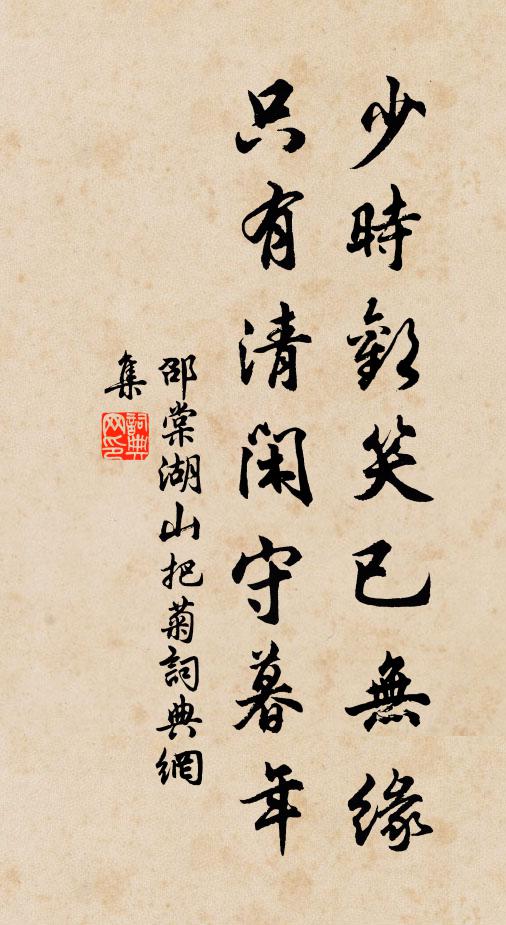 少時歡笑已無緣
只有清閑守暮年
邵棠湖山把菊詞典網
集
詞典網印